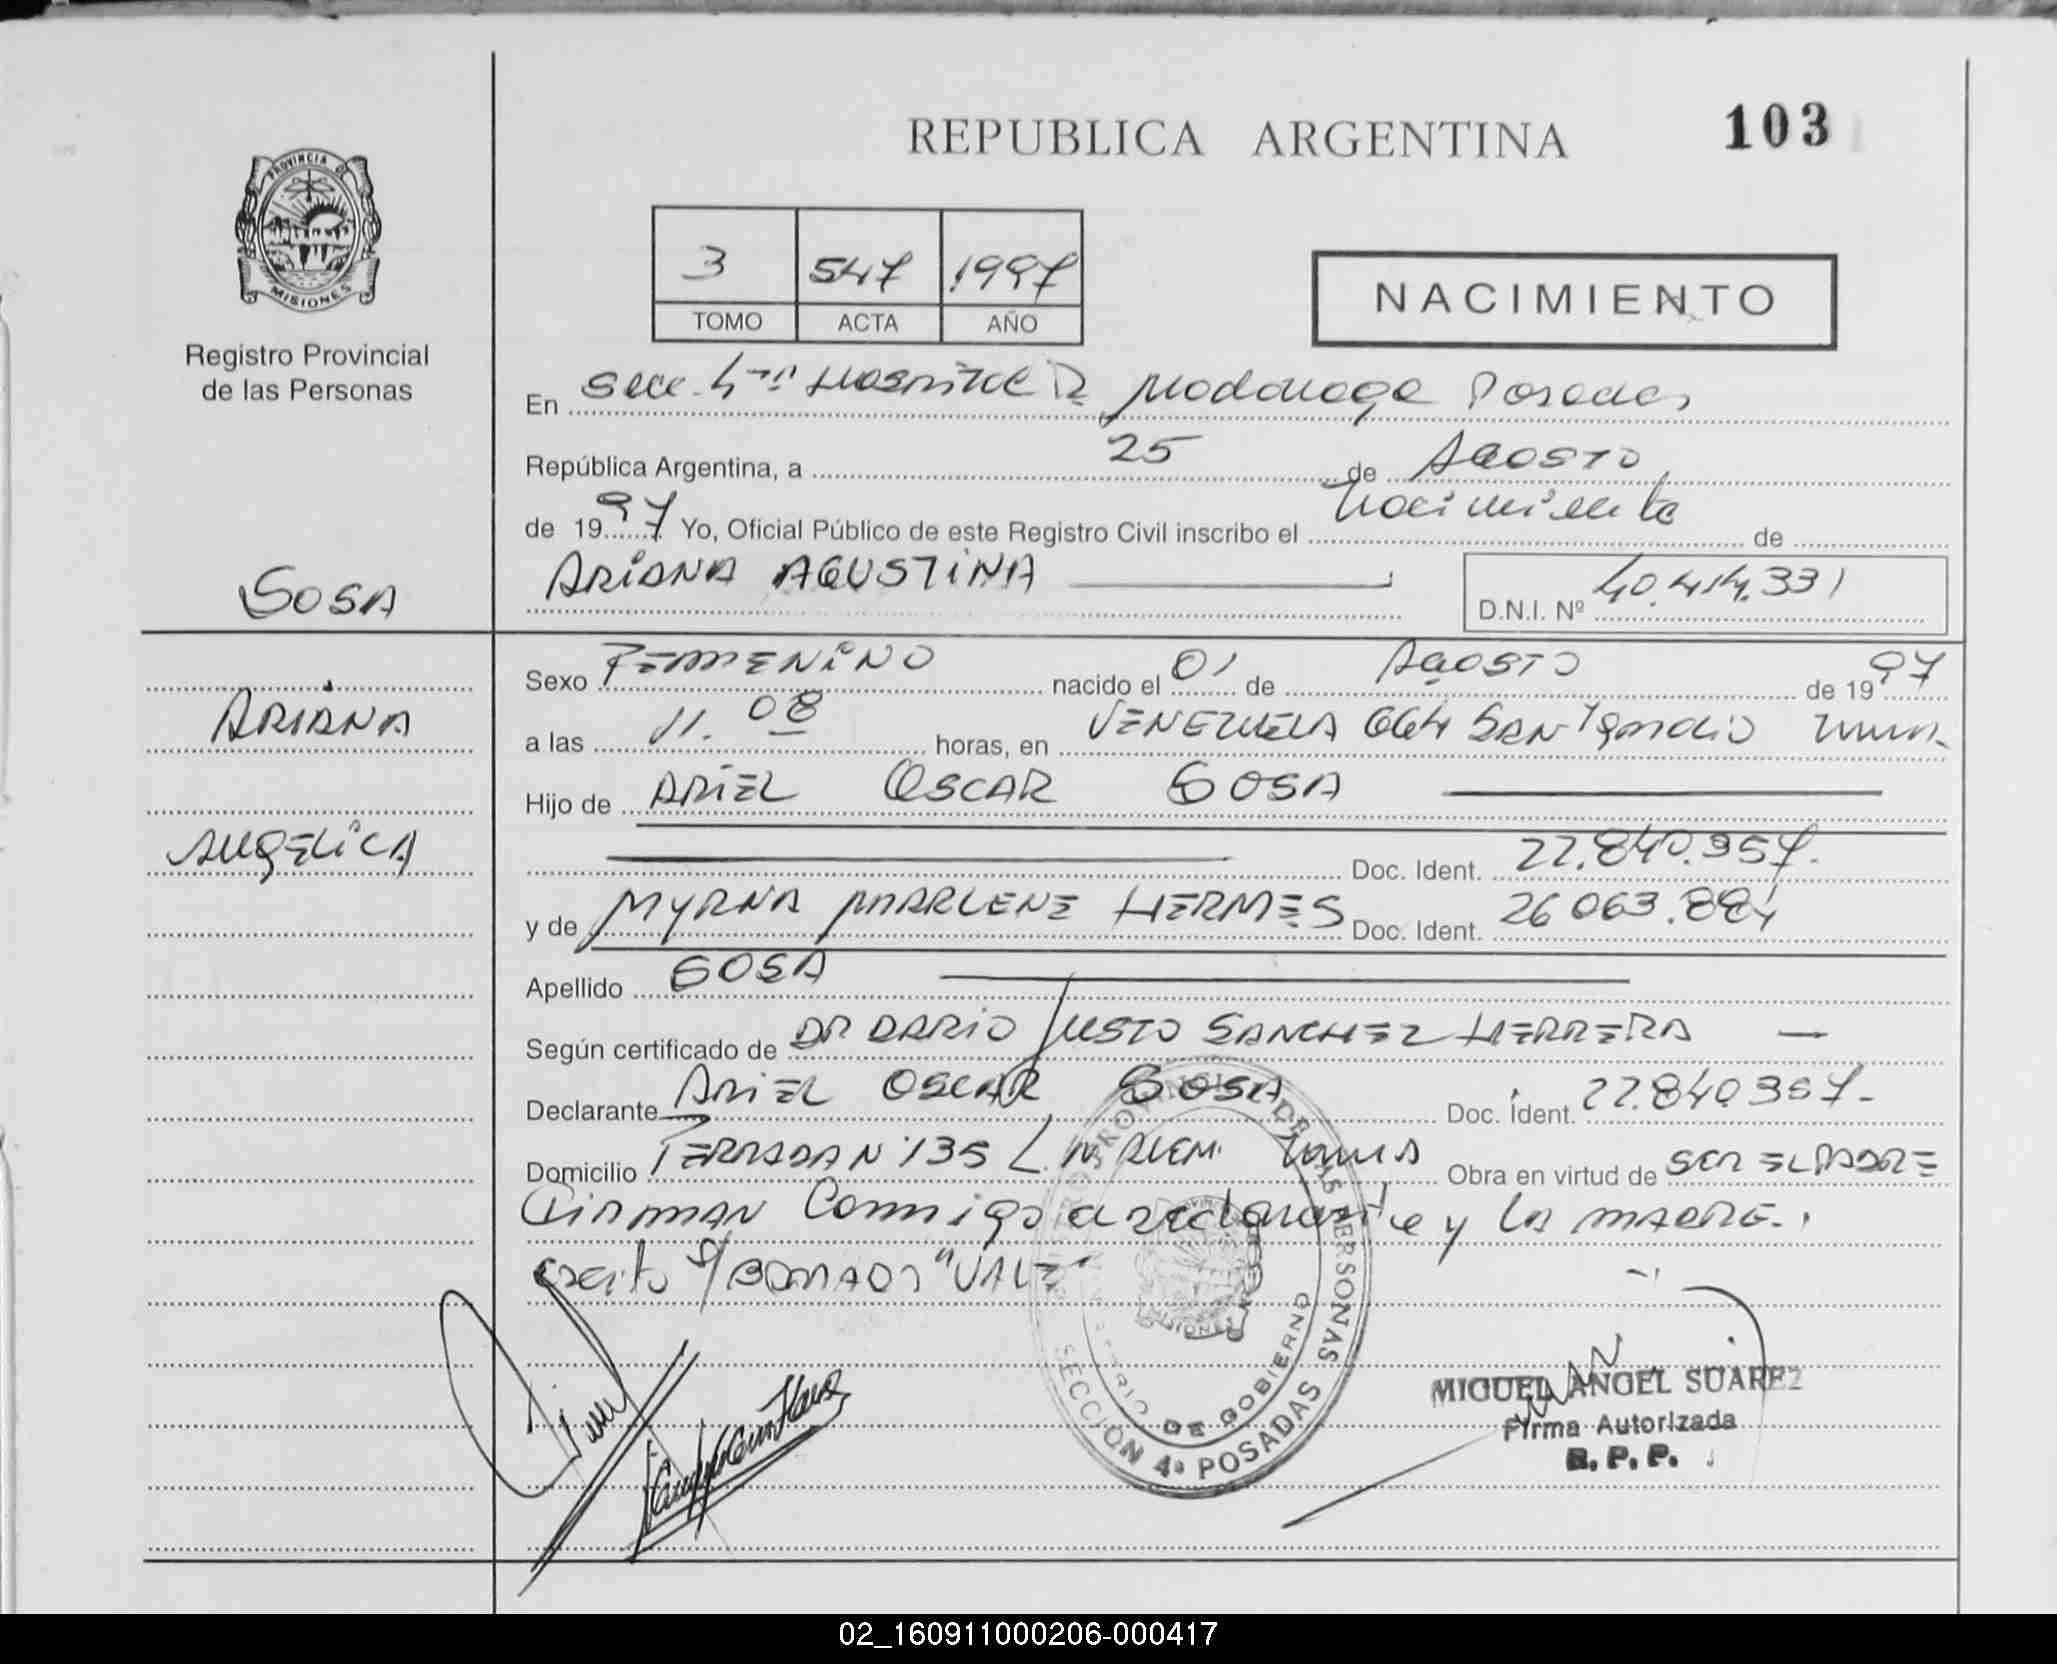 REPUBLICA ARGENTINA
103
PROVINCIA DE
MISIONES
Registro Provincial
de las Personas
3 547 1997
TOMO ACTA AÑO
NACIMIENTO
En Secc. 4ta Hospital R Madariaga Posadas
República Argentina, a 25 de Agosto
de 1997 Yo, Oficial Público de este Registro Civil inscribo el nacimiento de
SOSA
ARIANA AGUSTINA
D.N.I. Nº 40.414.331
Sexo FEMENINO nacido el 01 de AGOSTO de 1997
ARIANA
a las 11.08 horas, en VENEZUELA 664 SAN Ignacio
Hijo de ARIEL OSCAR SOSA
ANGELICA
Doc. Ident. 22.840.357.
y de MYRNA MARLENE HERMES Doc. Ident. 26 063.884
Apellido SOSA
Según certificado de DR DARIO JUSTO SANCHEZ HERRERA —
Declarante ARIEL OSCAR SOSA Doc. Ident. 22.840.357-
Domicilio N 135 L. N ALEM. Obra en virtud de SER EL PADRE
FIRMAN Conmigo declarante y LA MADRE.
escrito s/ BORRADO "VALE"
REGISTRO PROVINCIAL DE LAS PERSONAS
MINISTERIO DE GOBIERNO
MISIONES
SECCIÓN 4ª POSADAS
MIGUEL ANGEL SUAREZ
Firma Autorizada
R. P. P.
02_160911000206-000417